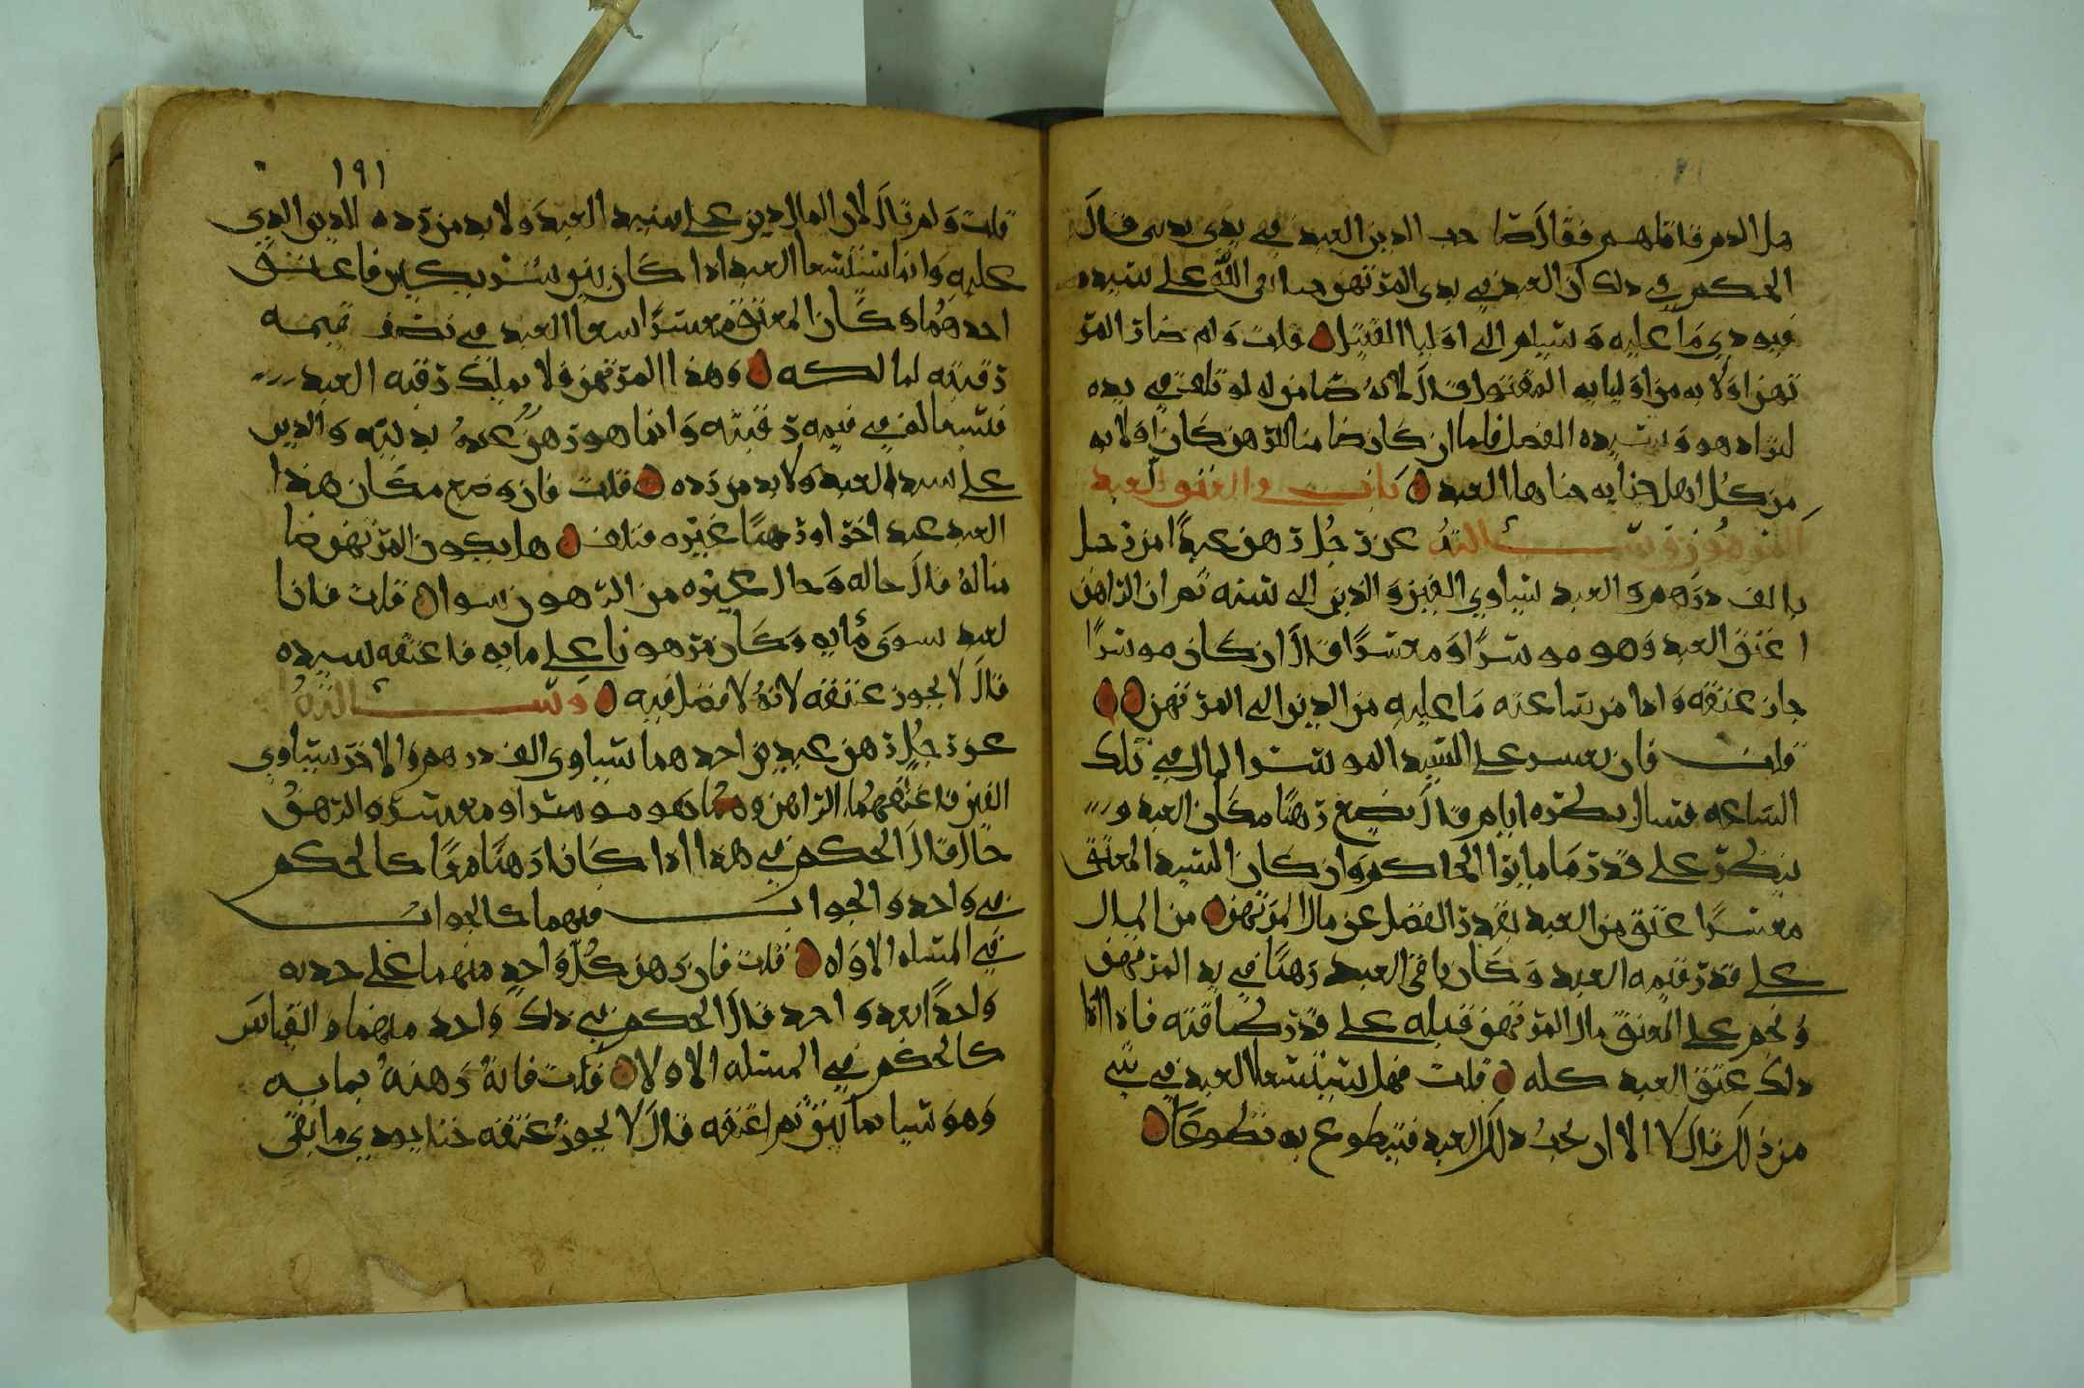 الحكم في ذلك ان العبد في يدي المرتهن على سيده
فيودي ما عليه ويسلم الى اوليا القتيل قلت ولم صار المر
تهن اولا به من اوليا به المقتول قال لانه ضامن له لو تلف في يده
لتراد هو وسيده الفضل فلما ان كان ضامنا للرهن كان اولا به
من كل اهل جنايه جناها العبد باب والعتق العبد
المرهون وسالته عن رجل رهن عبدا من رجل
بالف درهم والعبد يساوي الفين والدين الى سنه ثم ان الراهن
اعتق العبد وهو موسرا ومعسرا قال ان كان موسرا
جاز عتقه واما من ساعته ما عليه من الدين الى المرتهن
قلت فان تعسر على السيد الموسر المال في تلك
الساعه فسال بكره ايام قال يضع رهنا مكان العبد و
ينظر على قدر ما يرا الحاكم وان كان السيد المعتق
معسرا عتق من العبد بقدر الفضل عن مال المرتهن من المال
على قدر قيمه العبد وكان باقي العبد رهنا في يد المرتهن
ونجم على المعتق مال المرتهن قبله على قدر طاقته فاذا ادا
ذلك عتق العبد كله قلت فهل يستسعا العبد في شي
من ذلك قال لا الا ان يحب ذلك العبد فيتطوع به تطوعا
١٩١
قلت ولم قال لان المال دين على سيد العبد ولا بد من رده الدين الذي
عليه وانما يستسعا العبد اذا كان بين شريكين فاعتق
احدهما وكان المعتق معسرا سعا العبد في نصف قيمه
رقبته لمالكه وهذا المرتهن لا يملك رقبه العبد
فيسعا له في قيمه رقبته وانما هو رهن عنده بدينه والدين
على سيد العبد ولا بد من رده قلت فان وضع مكان هذا
العبد عبد اخر او رهنا غيره فتلف هل يكون المرتهن ضا
منا له قال حاله وحال غيره من الرهون سوا قلت فان ا
لعبد سوى مايه وكان مرهونا على مايه فاعتقه سيده
قال لا يجوز عتقه لانه لا فضل فيه وسالته
عن رجل رهن عبدين احدهما يساوي الف درهم والاخر يساوي
الفين فاعتقهما الراهن وهو موسر او معسر والرهن
حال قال الحكم في هذا اذا كانا رهنا معا كالحكم
في واحد والجواب فيهما كالجواب
في المسله الاوله قلت فان رهن كل واحد منهما على حده
واحدا بعد واحد قال الحكم في ذلك واحد منهما والقياس
كالحكم في المسله الاولا قلت فانه رهنه بمايه
وهو يسوا بمايتين ثم اعتقه قال لا يجوز عتقه حتا يودي ما بقي